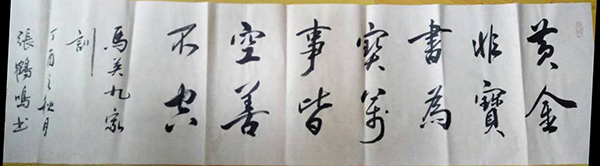 黄金
非寶
書為
寶萬
事皆
空善
不空
馬英九家
訓
丁酉之秋月
張鶴鳴书